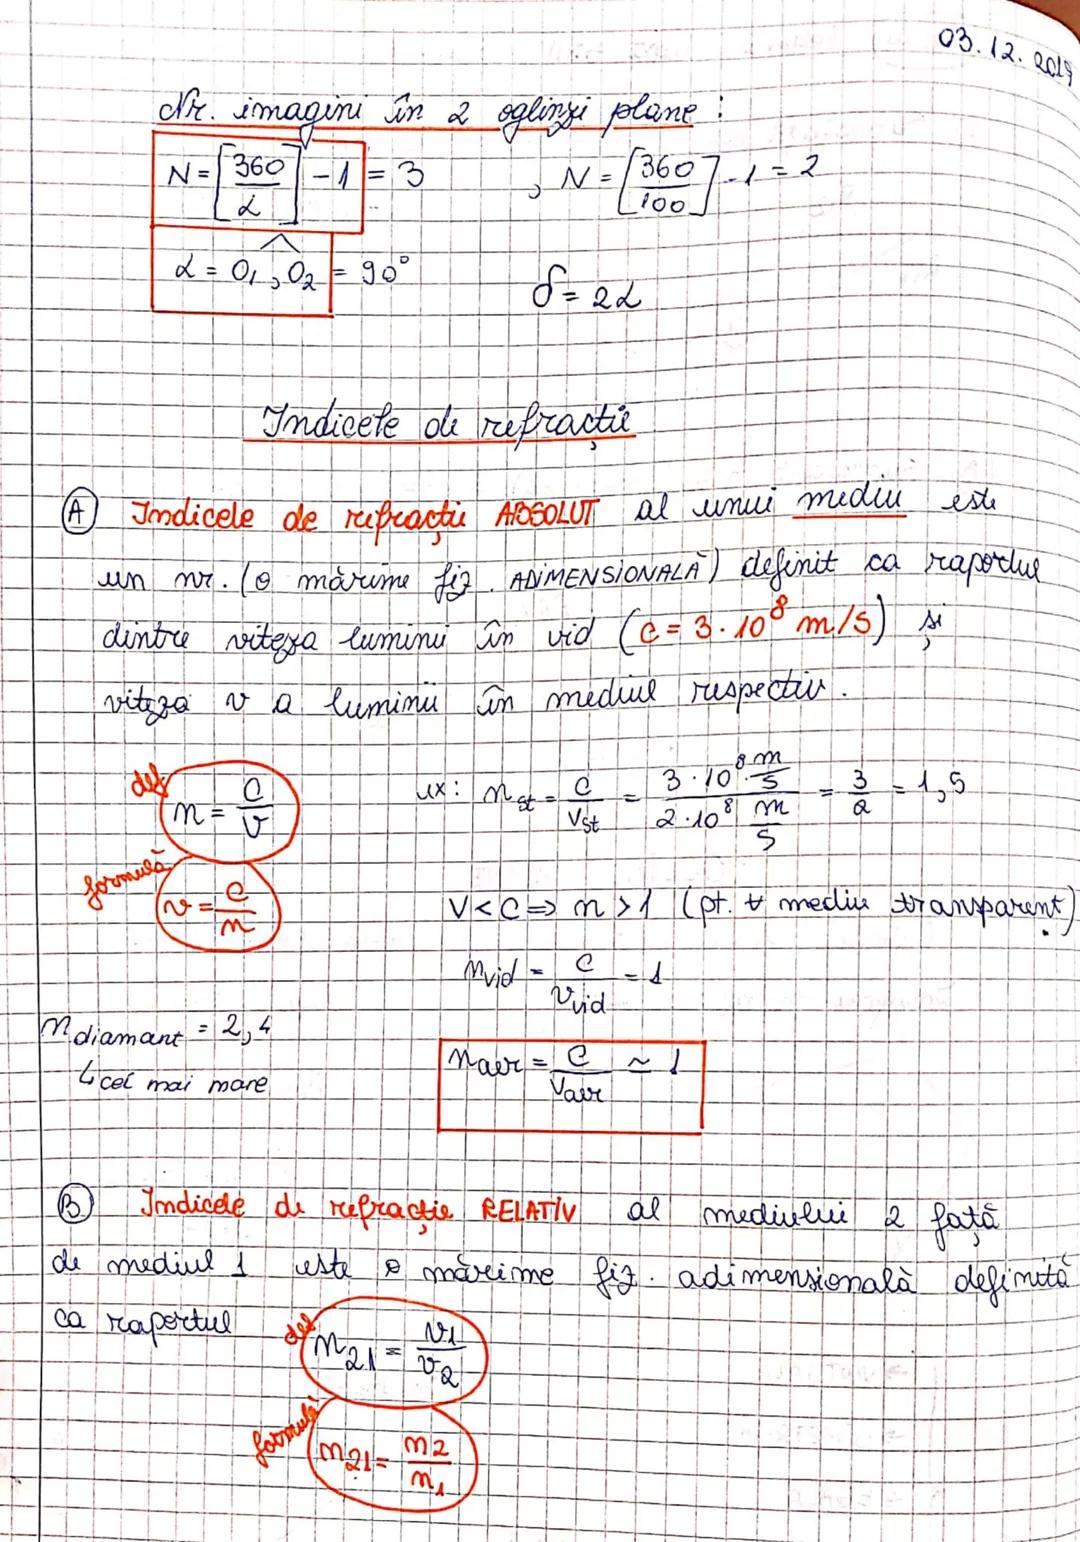 03.12.2019
Nr. imagini în 2 oglinzi plane :
N = [360/α] - 1 = 3 , N = [360/100] - 1 = 2
α = O₁,O₂ = 90°
δ = 2α
Indicele de refracție
Ⓐ Indicele de refracție ABSOLUT al unui mediu este
un nr. (o mărime fiz. ADIMENSIONALĂ) definit ca raportul
dintre viteza luminii în vid (c = 3·10⁸ m/s) și
viteza v a luminii în mediul respectiv.
def n = c/v
ex: n st = c/v st = (3·10⁸ m/s)/(2·10⁸ m/s) = 3/2 = 1,5
formulă v = c/n
v < c ⇒ n > 1 (pt. ∀ mediu transparent).
n vid = c/v vid = 1
n diamant = 2,4
↳ cel mai mare
n aer = c/v aer ≃ 1
Ⓑ Indicele de refracție RELATIV al mediului 2 față
de mediul 1 este o mărime fiz. adimensională definită
ca raportul
def n₂₁ = v₁/v₂
formulă n₂₁ = n₂/n₁